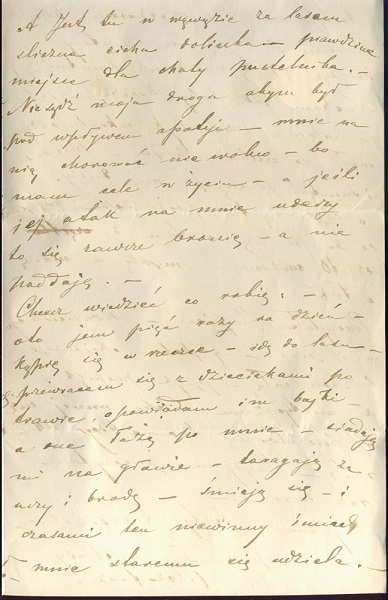 A jest tu w wąwozie za lasem
śliczna cicha dolinka – prawdziwe
miejsce dla chaty pustelnika. –
Nie sądź moja droga abym był
pod wpływem apatji – mnie na
nią chorować nie wolno – bo
mam cele w życiu – a jeśli
jej atak na mnie uderzy
to się zawsze bronię – a nie
poddaję. –
Chcesz wiedzieć co robię: –
oto jem pięć razy na dzień –
kąpię się w rzece – idę do lasu –
przewracam się z dzieciakami po
trawie opowiadam im bajki –
a one łażą po mnie – siadają
mi na głowie – targają za
uszy i brodę – śmieją się – i
czasami ten niewinny śmiech
i mnie staremu się udziela. –